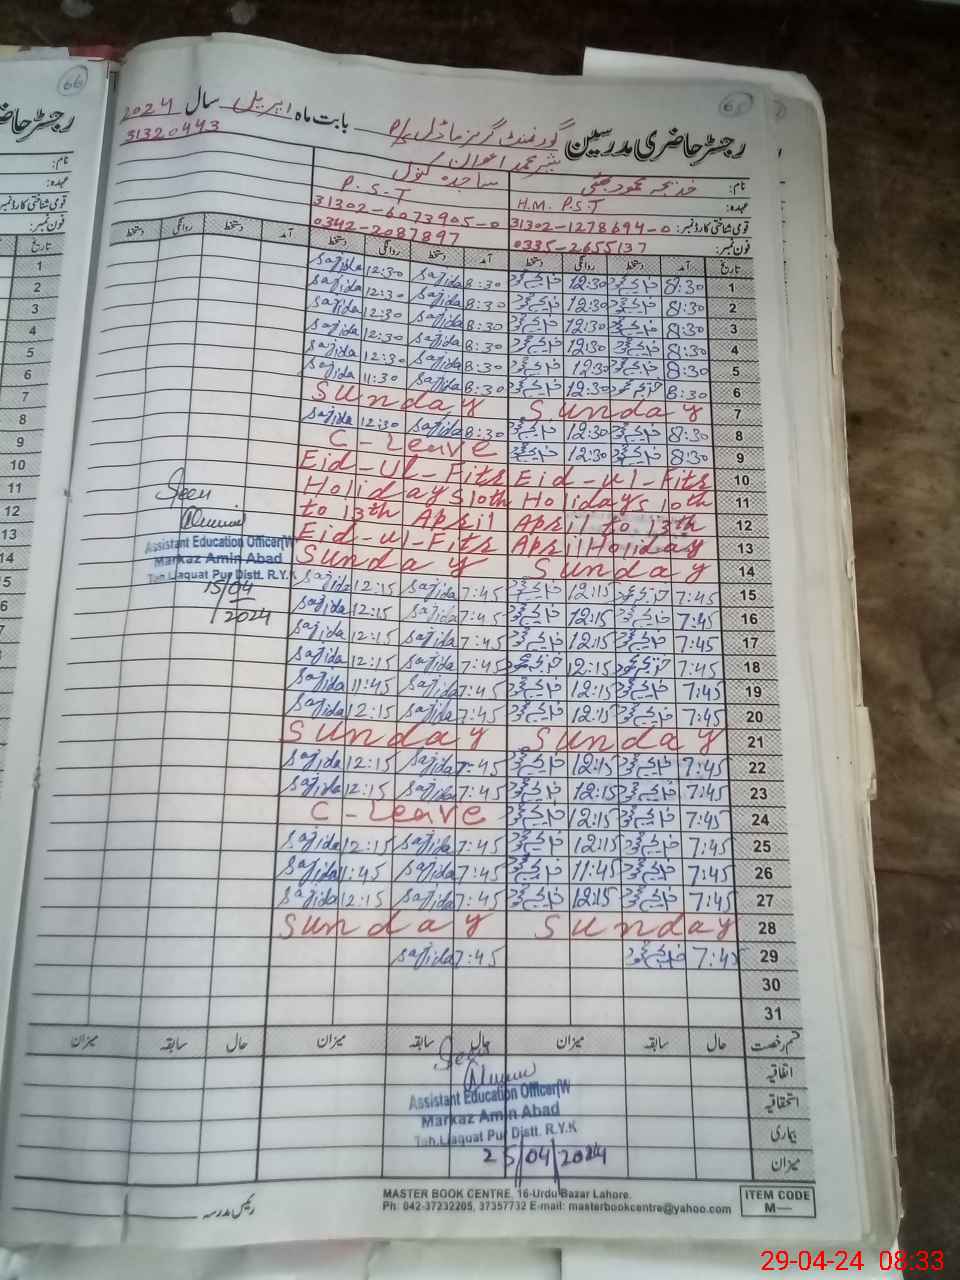 66
65
رجسٹر حاضری مدرسین گورنمنٹ گرلز ماڈل P/S بابت ماہ اپریل سال 2024
31320443
نام:
خدیجہ محمود
ساجدہ بتول
عہدہ: H.M. P.S.T P.S.T
قومی شناختی کارڈ نمبر: 31302-1278694-0 31302-6073905-0
فون نمبر: 0335-2655137 0342-2087897
تاریخ آمد دستخط روانگی دستخط آمد دستخط روانگی دستخط آمد دستخط روانگی دستخط
1 8:30 12:30 8:30 Sajida 12:30 Sajida
2 8:30 12:30 8:30 Sajida 12:30 Sajida
3 8:30 12:30 8:30 Sajida 12:30 Sajida
4 8:30 12:30 8:30 Sajida 12:30 Sajida
5 8:30 12:30 8:30 Sajida 12:30 Sajida
6 8:30 12:30 8:30 Sajida 11:30 Sajida
7 Sunday Sunday
8 8:30 12:30 8:30 Sajida 12:30 Sajida
9 8:30 12:30 C-Leave
10 Eid-ul-Fitr Eid-ul-Fitr
11 Holidays 10th Holidays 10th
12 to 13th April April to 13th
13 Eid-ul-Fitr April Holiday
14 Sunday Sunday
15 7:45 12:15 7:45 Sajida 12:15 Sajida
16 7:45 12:15 7:45 Sajida 12:15 Sajida
17 7:45 12:15 7:45 Sajida 12:15 Sajida
18 7:45 12:15 7:45 Sajida 12:15 Sajida
19 7:45 12:15 7:45 Sajida 11:45 Sajida
20 7:45 12:15 7:45 Sajida 12:15 Sajida
21 Sunday Sunday
22 7:45 12:15 7:45 Sajida 12:15 Sajida
23 7:45 12:15 7:45 Sajida 12:15 Sajida
24 7:45 12:15 C-Leave
25 7:45 12:15 7:45 Sajida 12:15 Sajida
26 7:45 11:45 7:45 Sajida 11:45 Sajida
27 7:45 12:15 7:45 Sajida 12:15 Sajida
28 Sunday Sunday
29 7:45 7:45 Sajida
30
31
Seen
Assistant Education Officer(W
Markaz Amin Abad
Teh. Liaquat Pur Distt. R.Y.K
15/04
2024
قسم رخصت حال سابقہ میزان حال سابقہ میزان حال سابقہ میزان
اتفاقیہ
استحقاقیہ
بیماری
میزان
Seen
Assistant Education Officer(W
Markaz Amin Abad
Teh. Liaquat Pur Distt. R.Y.K
25/04/2024
رئیس مدرسہ
MASTER BOOK CENTRE, 16-Urdu Bazar Lahore.
Ph: 042-37232205, 37357732 E-mail: masterbookcentre@yahoo.com
ITEM CODE
M—
29-04-24 08:33